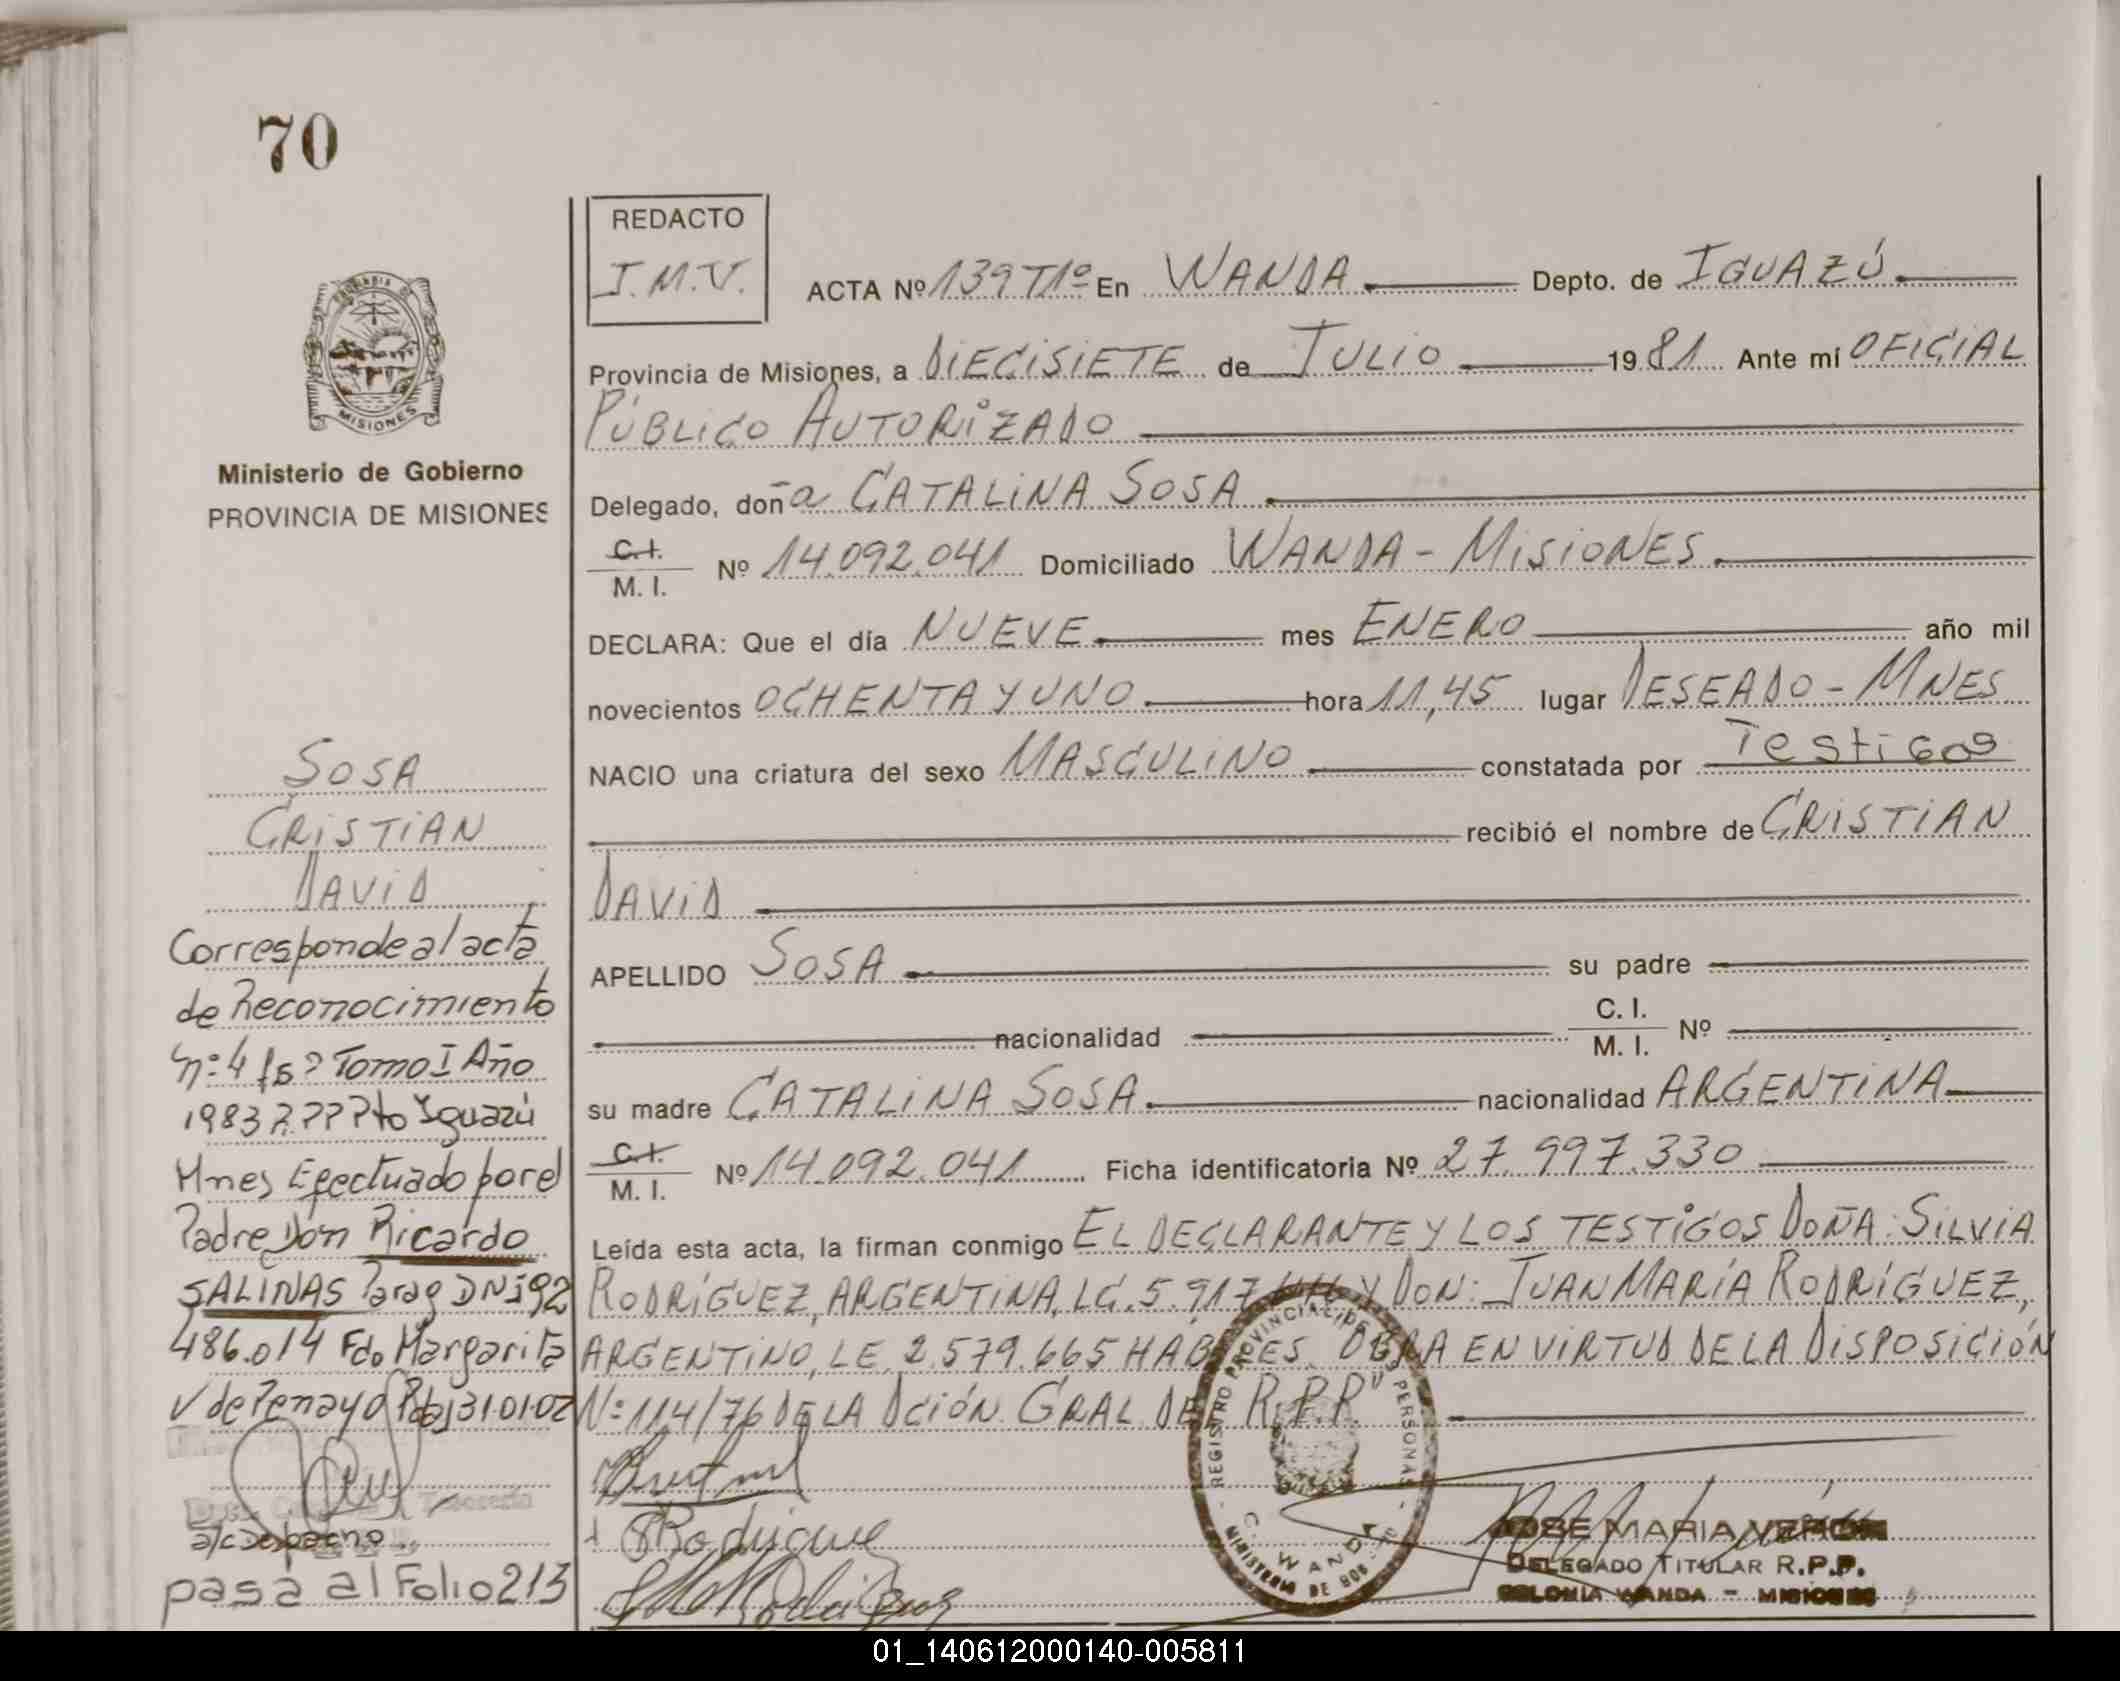 70
REDACTO
J.M.V.
ACTA Nº 139 T1º En WANDA Depto. de IGUAZÚ
Provincia de Misiones, a DIECISIETE de JULIO 1981 Ante mí OFICIAL
PÚBLICO AUTORIZADO
Delegado, doña CATALINA SOSA
C.I.
M. I. Nº 14.092.041 Domiciliado WANDA - MISIONES
DECLARA: Que el día NUEVE mes ENERO año mil
novecientos OCHENTA Y UNO hora 11,45 lugar DESEADO - MNES
NACIO una criatura del sexo MASCULINO constatada por Testigos
recibió el nombre de CRISTIAN
DAVID
APELLIDO SOSA su padre
nacionalidad C. I.
M. I. Nº
su madre CATALINA SOSA nacionalidad ARGENTINA
C.I.
M. I. Nº 14.092.041 Ficha identificatoria Nº 27.997.330
Leída esta acta, la firman conmigo EL DECLARANTE Y LOS TESTIGOS DOÑA: SILVIA
RODRÍGUEZ, ARGENTINA, LC. 5.917 Y DON: JUAN MARÍA RODRÍGUEZ,
ARGENTINO, LE. 2.579.665 HÁBILES. OBRA EN VIRTUD DE LA DISPOSICIÓN
Nº 114/76 DE LA DCIÓN GRAL DEL R.P.P.
Rodriguez
REGISTRO PROVINCIAL DE LAS PERSONAS
WANDA
MINISTERIO DE GOB.
JOSE MARIA VERON
DELEGADO TITULAR R.P.P.
COLONIA WANDA - MISIONES
MISIONES
Ministerio de Gobierno
PROVINCIA DE MISIONES
SOSA
CRISTIAN
DAVID
Corresponde al acta
de Reconocimiento
nº 4 fs ? Tomo I Año
1983 ? ???to Iguazú
Mnes Efectuado por el
Padre Don Ricardo
SALINAS Parag DNI 92
486.014 Fdo Margarita
V de Penayo Pdas 31.01.02
a/c Despacho
pasa al Folio 213
01_140612000140-005811